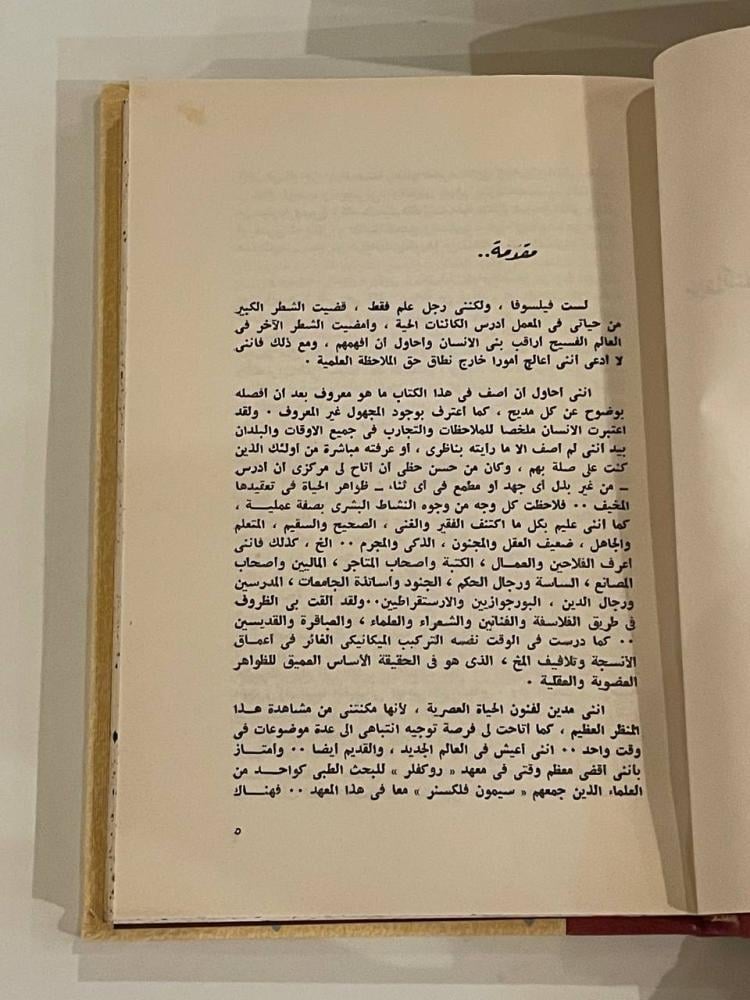 مقدمة..
لست فيلسوفا ، ولكننى رجل علم فقط ، قضيت الشطر الكبير
من حياتى فى المعمل ادرس الكائنات الحية ، وامضيت الشطر الآخر فى
العالم الفسيح اراقب بنى الانسان واحاول ان افهمهم ، ومع ذلك فاننى
لا ادعى اننى اعالج امورا خارج نطاق حق الملاحظة العلمية .
اننى احاول ان اصف فى هذا الكتاب ما هو معروف بعد ان افصله
بوضوح عن كل مديح ، كما اعترف بوجود المجهول غير المعروف . ولقد
اعتبرت الانسان ملخصا للملاحظات والتجارب فى جميع الاوقات والبلدان
بيد اننى لم اصف الا ما رايته بناظرى ، أو عرفته مباشرة من أولئك الذين
كنت على صلة بهم ، وكان من حسن حظى ان اتاح لى مركزى ان ادرس
ـ من غير بذل اى جهد او مطمع فى اى ثناء ـ ظواهر الحياة فى تعقيدها
المخيف .. فلاحظت كل وجه من وجوه النشاط البشرى بصفة عمليـة ،
كما اننى عليم بكل ما اكتنف الفقير والغنى ، الصحيح والسقيم ، المتعلم
والجاهل ، ضعيف العقل والمجنون ، الذكى والمجرم .. الخ ، كذلك فاننى
اعرف الفلاحين والعمـال ، الكتبة واصحاب المتاجر ، الماليين واصحاب
المصانع ، الساسة ورجال الحكم ، الجنود واساتذة الجامعات ، المدرسين
ورجال الدين ، البورجوازيين والارستقراطيين..ولقد القت بى الظروف
فى طريق الفلاسفة والفنانين والشعراء والعلماء ، والعباقرة والقديسين
.. كما درست فى الوقت نفسه التركيب الميكانيكى الغائر فى اعماق
الأنسجة وتلافيف المخ ، الذى هو فى الحقيقة الأساس العميق للظواهر
العضوية والعقلية .
اننى مدين لفنون الحياة العصرية ، لأنها مكنتنى من مشاهدة هـذا
المنظر العظيم ، كما اتاحت لى فرصة توجيه انتباهى الى عدة موضوعات فى
وقت واحد .. اننى اعيش فى العالم الجديد ، والقديم ايضا .. وامتـاز
بأننى اقضى معظم وقتى فى معهد « روكفلر » للبحث الطبى كواحـد من
العلماء الذين جمعهم « سيمون فلكسنر » معا فى هذا المعهد .. فهنـاك
٥